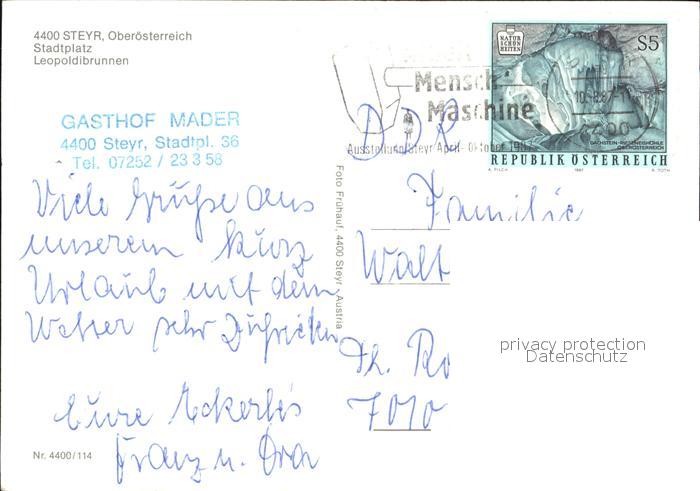 4400 STEYR, Oberösterreich
Stadtplatz
Leopoldibrunnen
GASTHOF MADER
4400 Steyr, Stadtpl. 36
Tel. 07252 / 23 3 58
Viele Grüße aus
unserem Kurz
Urlaub mit dem
Wetter sehr Zufrieden
Eure
Franz u.
Nr. 4400/114
Foto Frühauf, 4400 Steyr, Austria
Mensch
Maschine
Ausstellung Steyr April-Oktober 1987
NATUR
SCHÖN
HEITEN
S5
4400
DACHSTEIN-RIESENEISHÖHLE
OBERÖSTERREICH
REPUBLIK ÖSTERREICH
A. PILCH 1987 A. TOTH
DDR
Familie
Walt
Th. Ro
7010
privacy protection
Datenschutz